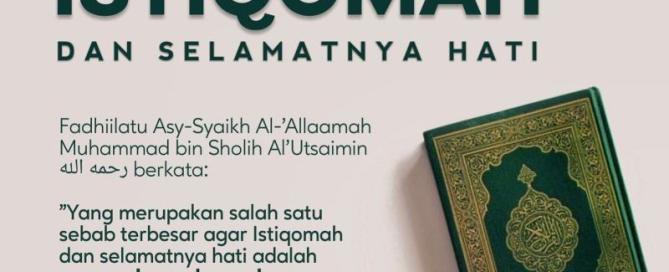 ISTIQOMAH
DAN SELAMATNYA HATI
Fadhiilatu Asy-Syaikh Al-'Allaamah
Muhammad bin Sholih Al'Utsaimin
رحمه الله berkata:
"Yang merupakan salah satu
sebab terbesar agar Istiqomah
dan selamatnya hati adalah